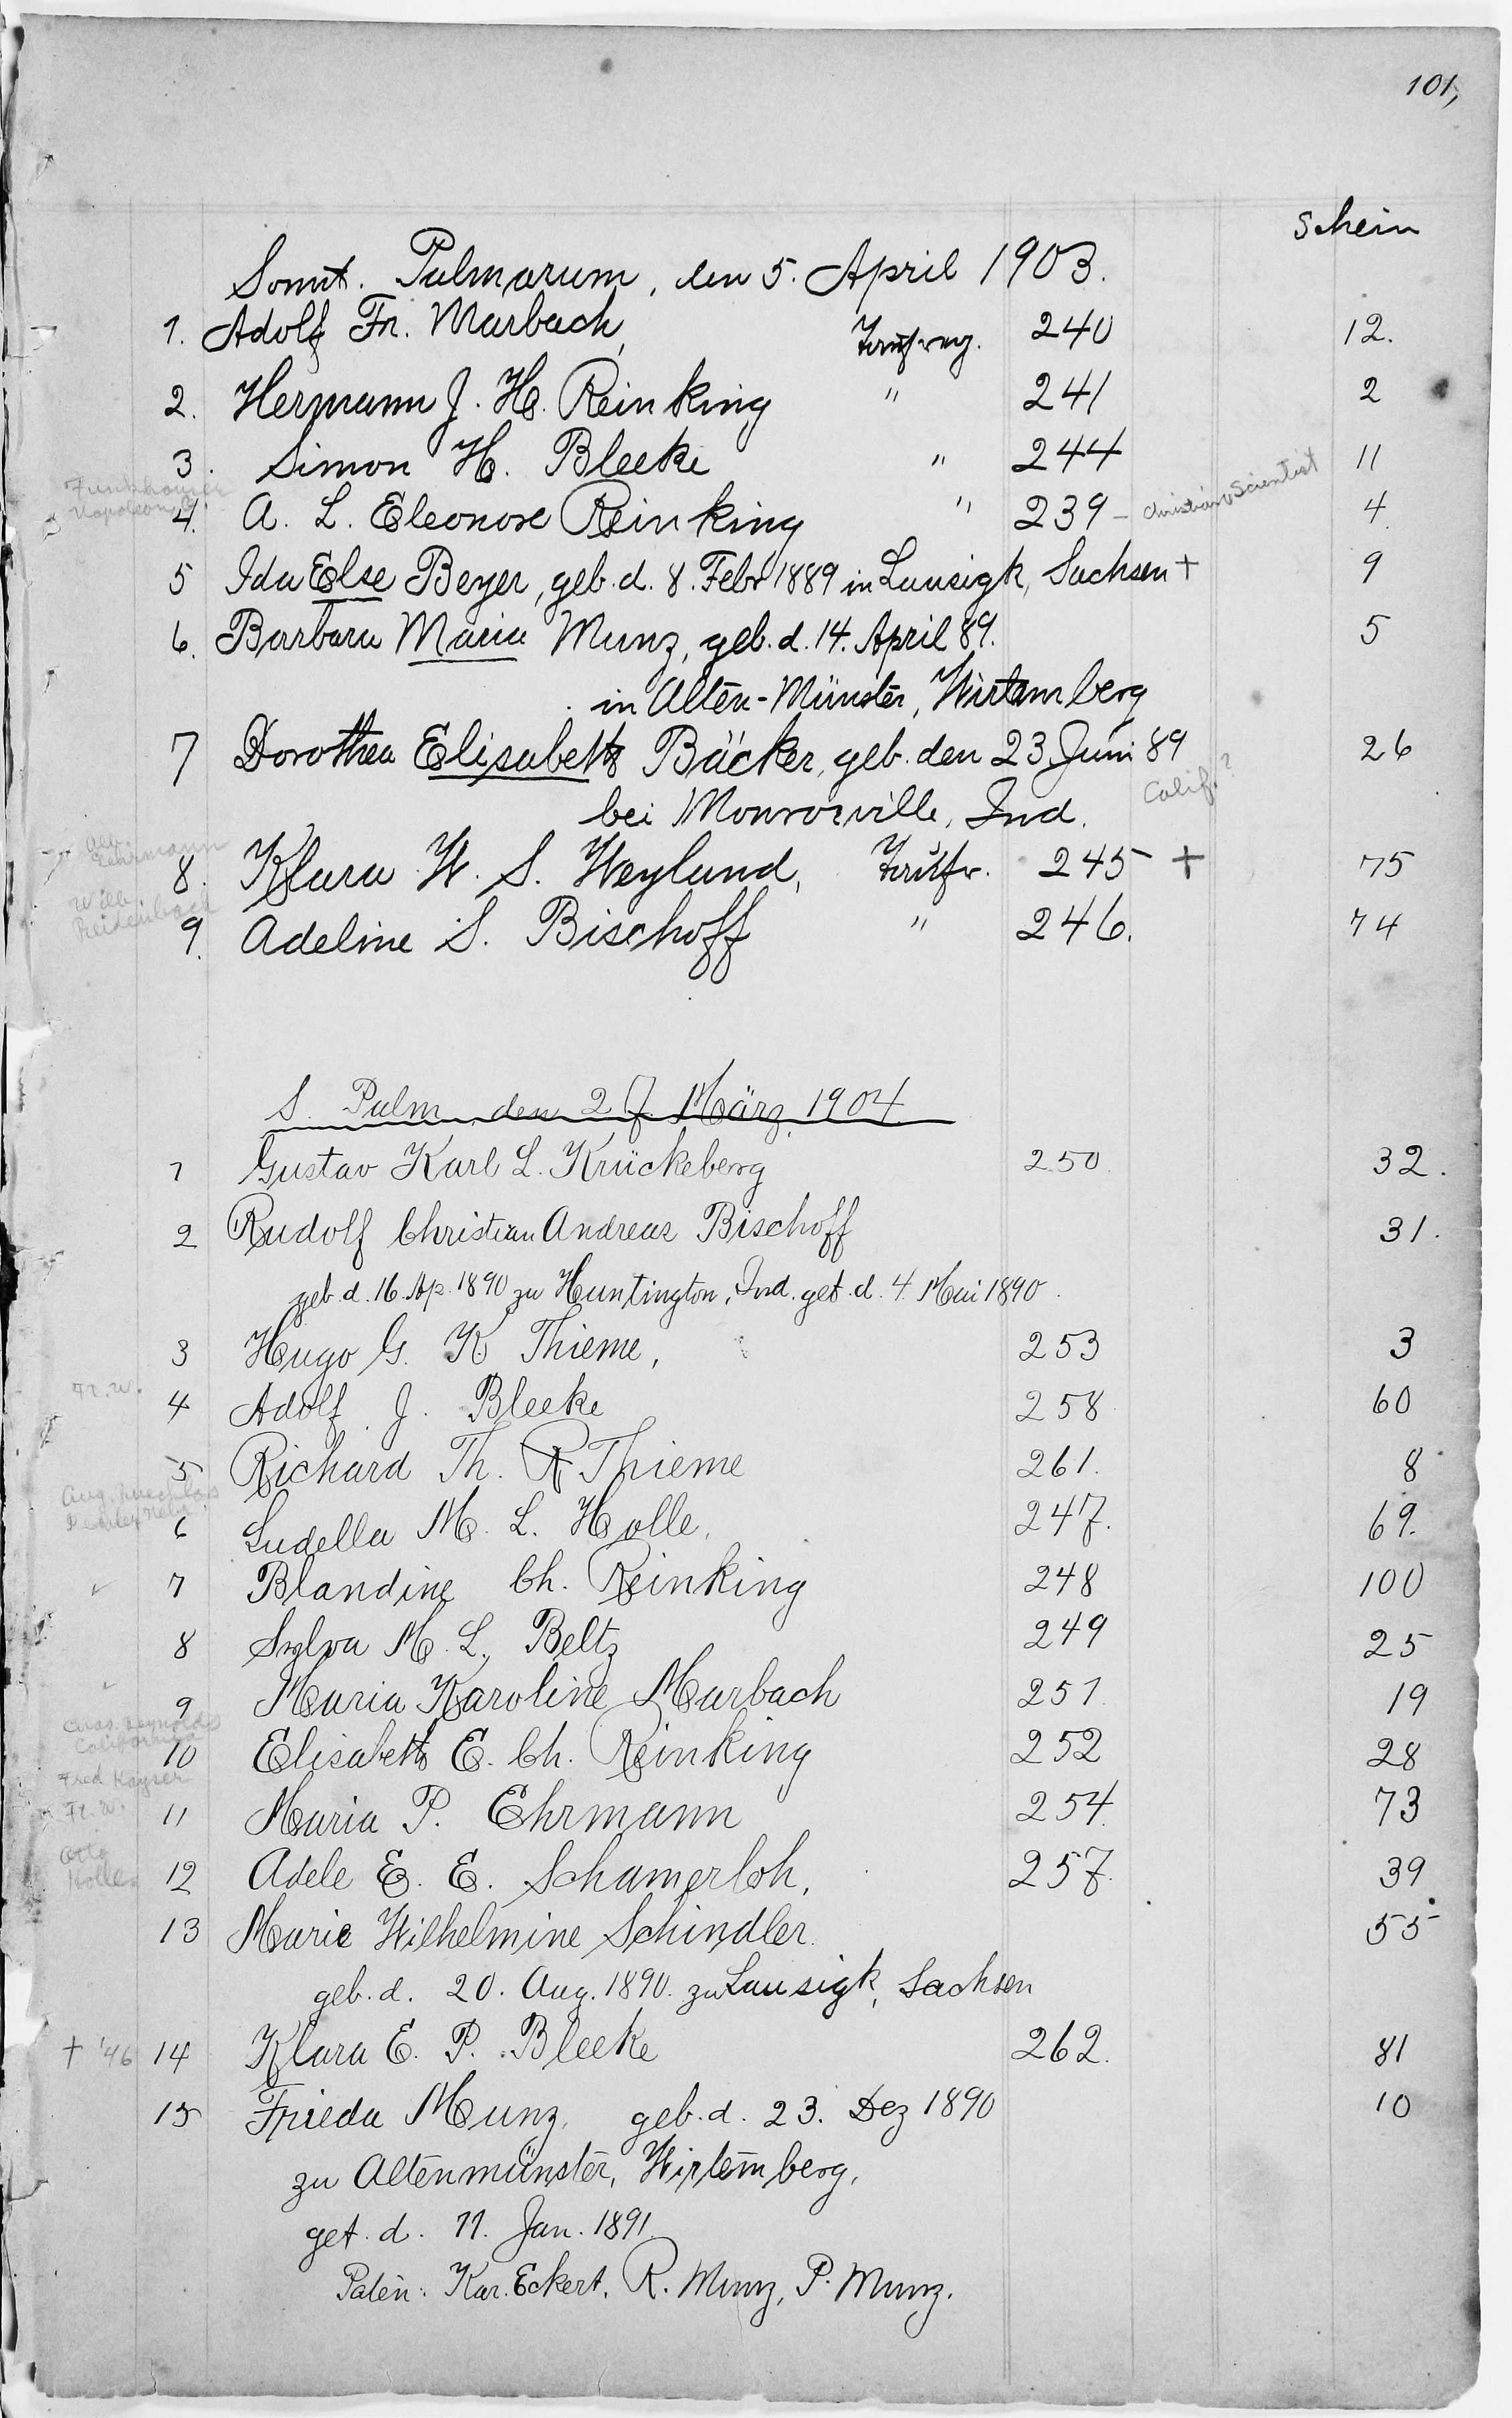 101,
Schein
Sonnt. Palmarum, den 5. April 1903.
1. Adolf Fr. Marbach, Taufreg. 240 12.
2. Hermann J. H. Reinking " 241 2
3. Simon H. Bleeke " 244 11
4. A. L. Eleonore Reinking " 239 - Christian Scientist 4.
5 Ida Else Beyer, geb. d. 8. Febr 1889 in Lausigk, Sachsen + 9
6. Barbara Maria Munz, geb. d. 14. April 89. 5
in Alten-Münster, Wirtemberg
7 Dorothea Elisabeth Bäcker, geb. den 23. Juni 89 26
Calif.?
bei Monroeville, Ind.
Ehrmann
8. Klara W. S. Weyland, Taufr. 245 + 75
Reidenbach
9. Adeline S. Bischoff " 246. 74
S. Palm. den 27. März 1904
1 Gustav Karl L. Krückeberg 250. 32.
2 Rudolf Christian Andreas Bischoff 31.
geb. d. 16. Ap. 1890 zu Huntington, Ind. get. d. 4. Mai 1890.
3 Hugo G. K Thieme, 253 3
Ft. W.
4 Adolf J. Bleeke 258 60
5 Richard Th. R Thieme 261. 8
Aug.
6 Ludella M. L. Holle, 247. 69.
7 Blandine Ch. Reinking 248 100
8 Sylva M. L. Beltz 249 25
9 Maria Karoline Marbach 251. 19
Chas. Reynolds
California
10 Elisabeth E. Ch. Reinking 252 28
Fred Kayser
Ft. W.
11 Maria P. Ehrmann 254. 73
Otto
Holle
12 Adele E. E. Schamerloh, 257. 39
13 Marie Wilhelmine Schindler. 55
geb. d. 20. Aug. 1890. zu Lausigk, Sachsen
+ '46 14 Klara E. P. Bleeke 262. 81
15 Frieda Munz, geb. d. 23. Dez 1890 10
zu Altenmünster, Wirtemberg,
get. d. 11. Jan. 1891.
Paten: Kar. Eckert, R. Munz, P. Munz.